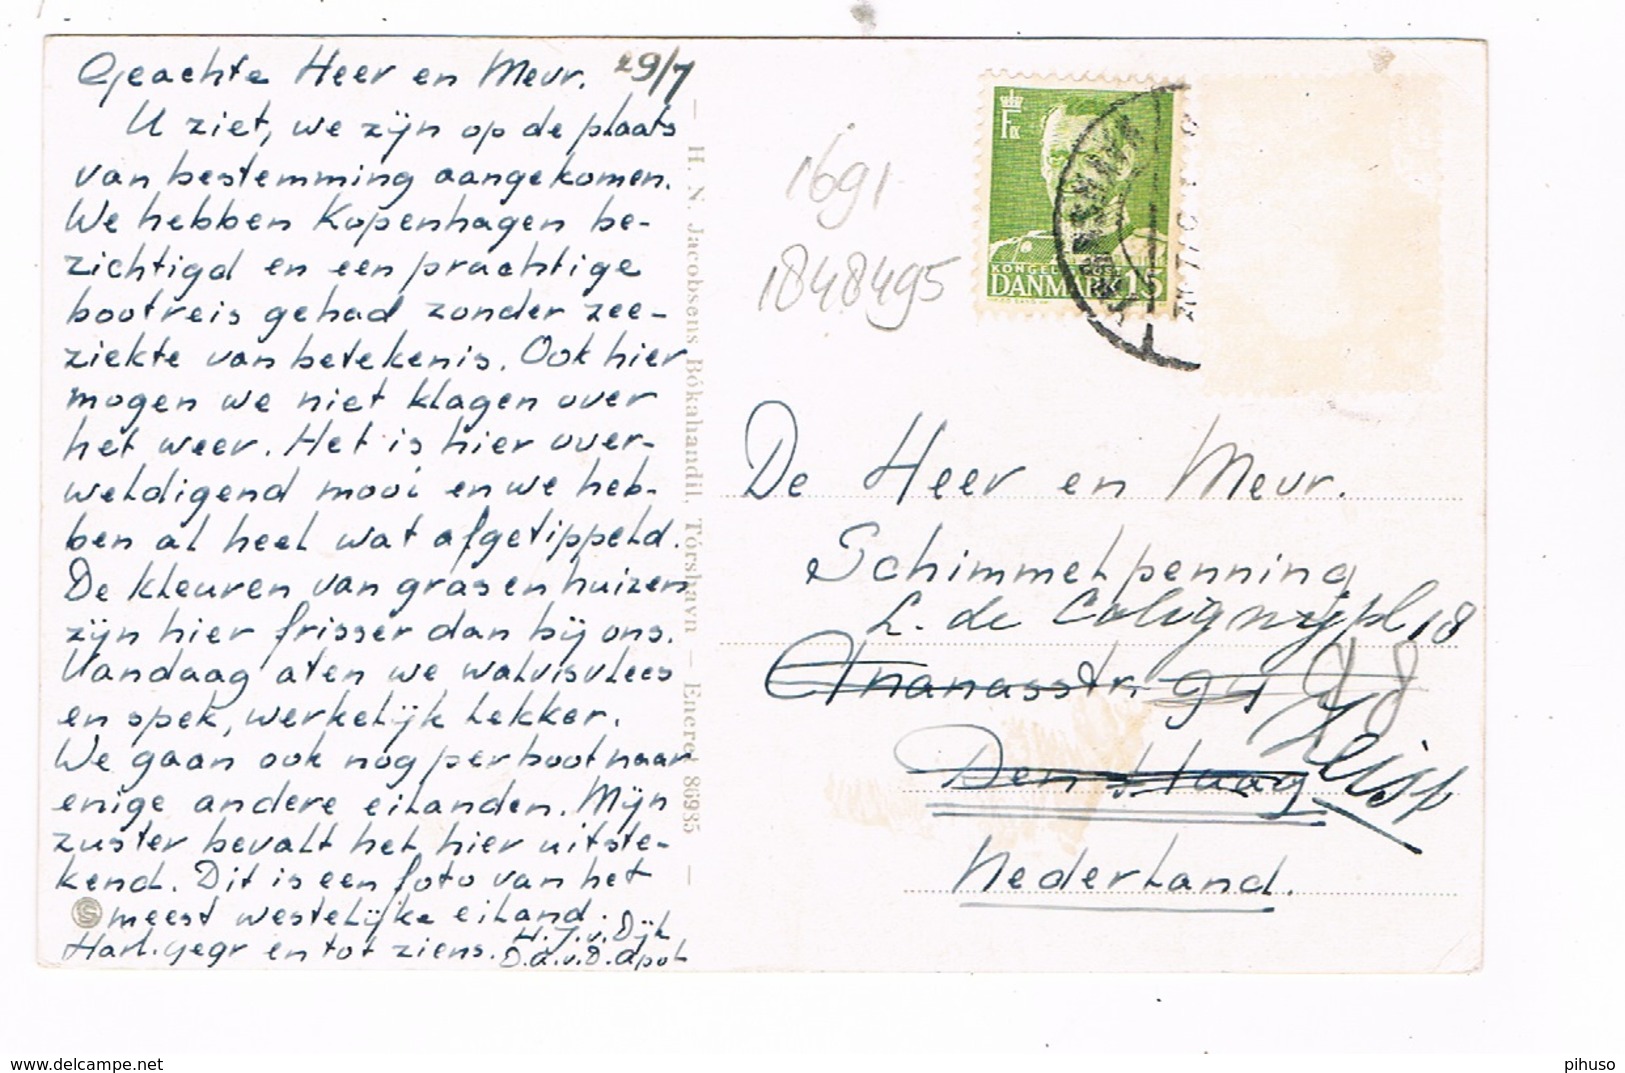 Geachte Heer en Mevr. 29/7
U ziet, we zijn op de plaats
van bestemming aangekomen.
We hebben Kopenhagen be-
zichtigd en een prachtige
bootreis gehad zonder zee-
ziekte van betekenis. Ook hier
mogen we niet klagen over
het weer. Het is hier over-
weldigend mooi en we heb-
ben al heel wat afgetippeld.
De kleuren van gras en huizen
zijn hier frisser dan bij ons.
Vandaag aten we walvisvlees
en spek, werkelijk lekker.
We gaan ook nog per boot naar
enige andere eilanden. Mijn
zuster bevalt het hier uitste-
kend. Dit is een foto van het
meest westelijke eiland.
Hart. gegr en tot ziens. H. J. v. Dijk
— H. N. Jacobsens Bókahandil, Tórshavn — Eneret 86985 —
1691
1848495
KONGEL POST
DANMARK 15
De Heer en Mevr.
Schimmelpenning
L. de Colignypl 18
Ananasstr. 91
Den Haag
Nederland.
www.delcampe.net
pihuso